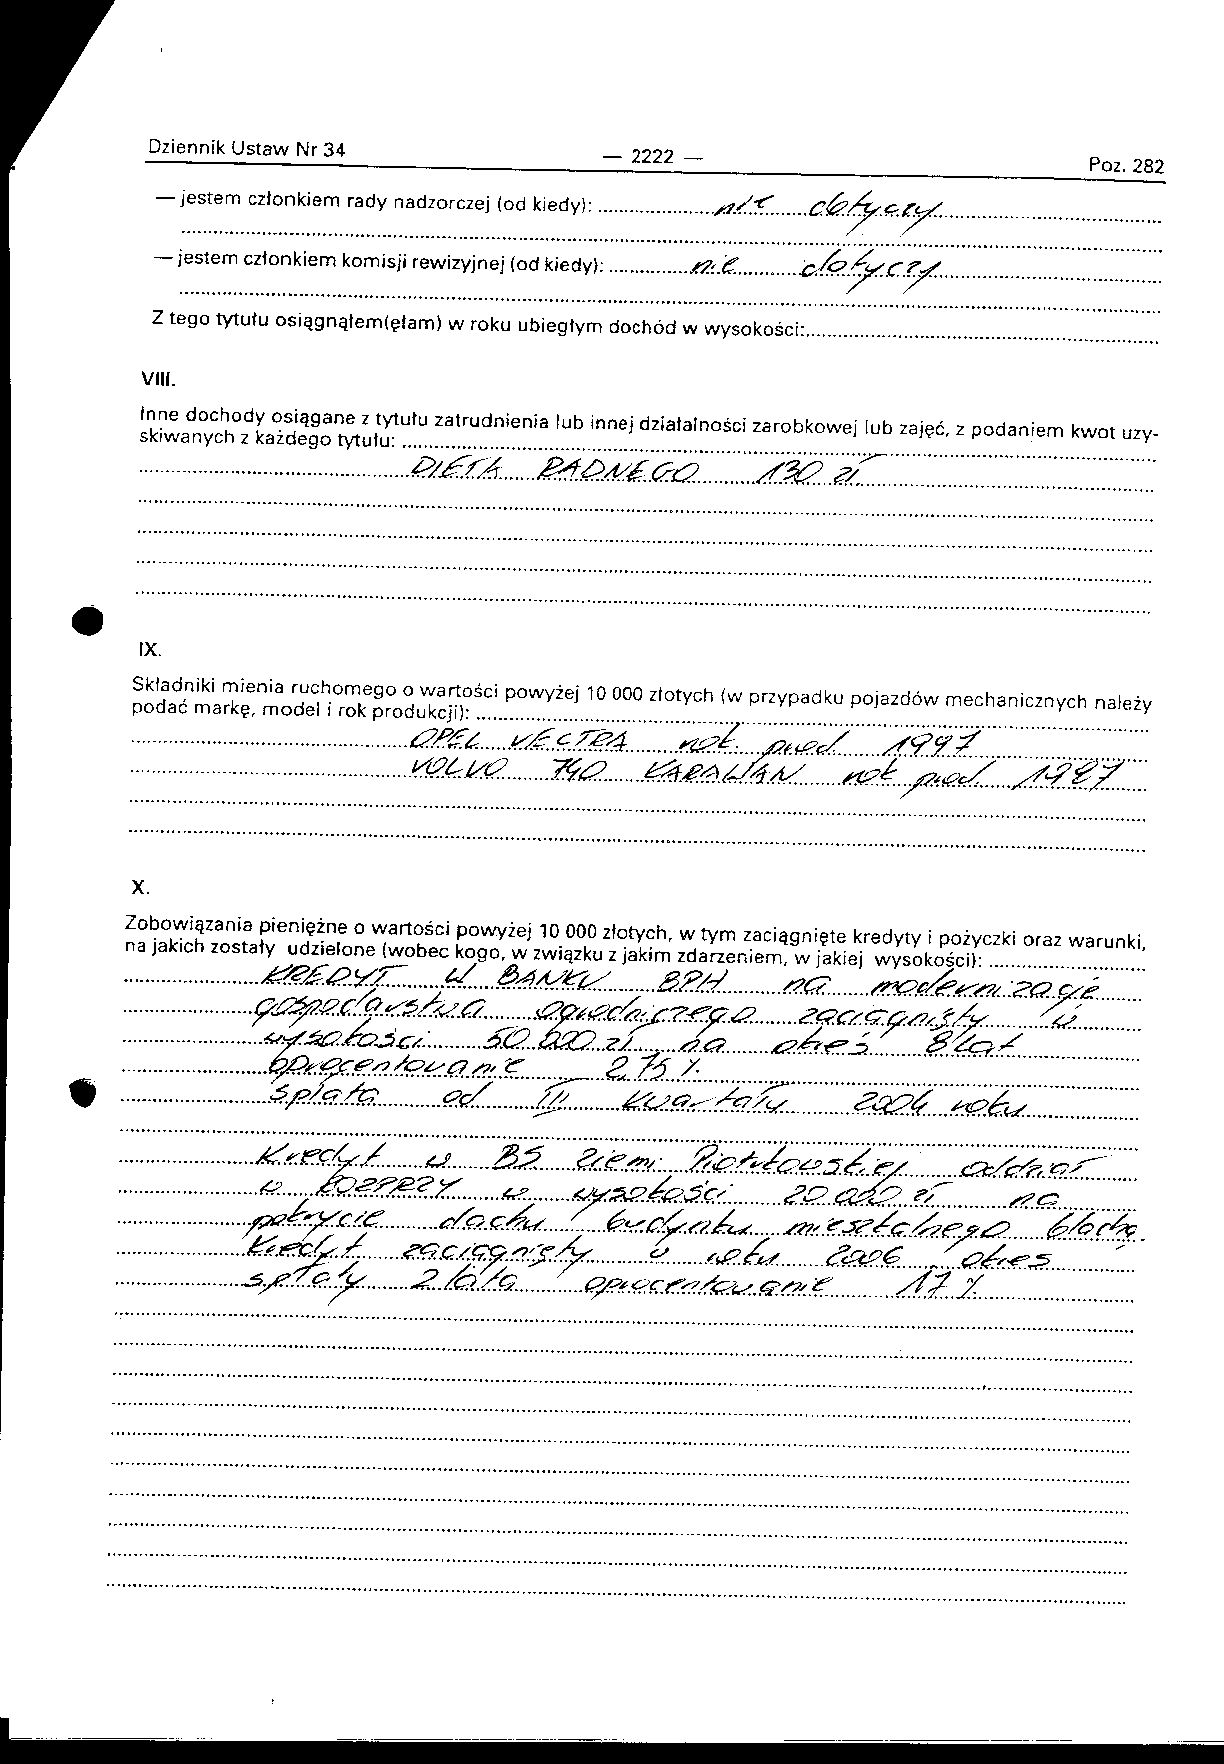 Dziennik Ustaw Nr 34 — 2222 — Poz. 282
— jestem członkiem rady nadzorczej (od kiedy): nie dotyczy
— jestem członkiem komisji rewizyjnej (od kiedy): nie dotyczy
Z tego tytułu osiągnąłem(ęłam) w roku ubiegłym dochód w wysokości:
VIII.
Inne dochody osiągane z tytułu zatrudnienia lub innej działalności zarobkowej lub zajęć, z podaniem kwot uzy-
skiwanych z każdego tytułu:
DIETA RADNEGO 130 zł
IX.
Składniki mienia ruchomego o wartości powyżej 10 000 złotych (w przypadku pojazdów mechanicznych należy
podać markę, model i rok produkcji):
OPEL VECTRA rok prod. 1997
VOLVO 740 KARAWAN rok prod. 1987
X.
Zobowiązania pieniężne o wartości powyżej 10 000 złotych, w tym zaciągnięte kredyty i pożyczki oraz warunki,
na jakich zostały udzielone (wobec kogo, w związku z jakim zdarzeniem, w jakiej wysokości):
KREDYT W BANKU BPH na modernizację
gospodarstwa ogrodniczego zaciągnięty w
wysokości 50 000 zł na okres 8 lat
oprocentowanie 2,75 %
spłata od III kwartału 2004 roku
Kredyt w BS Ziemi Piotrkowskiej oddział
w ROZPRZY w wysokości 20 000 zł na
pokrycie dachu budynku mieszkalnego blachą.
Kredyt zaciągnięty w roku 2006 okres
spłaty 2 lata oprocentowanie 17 %